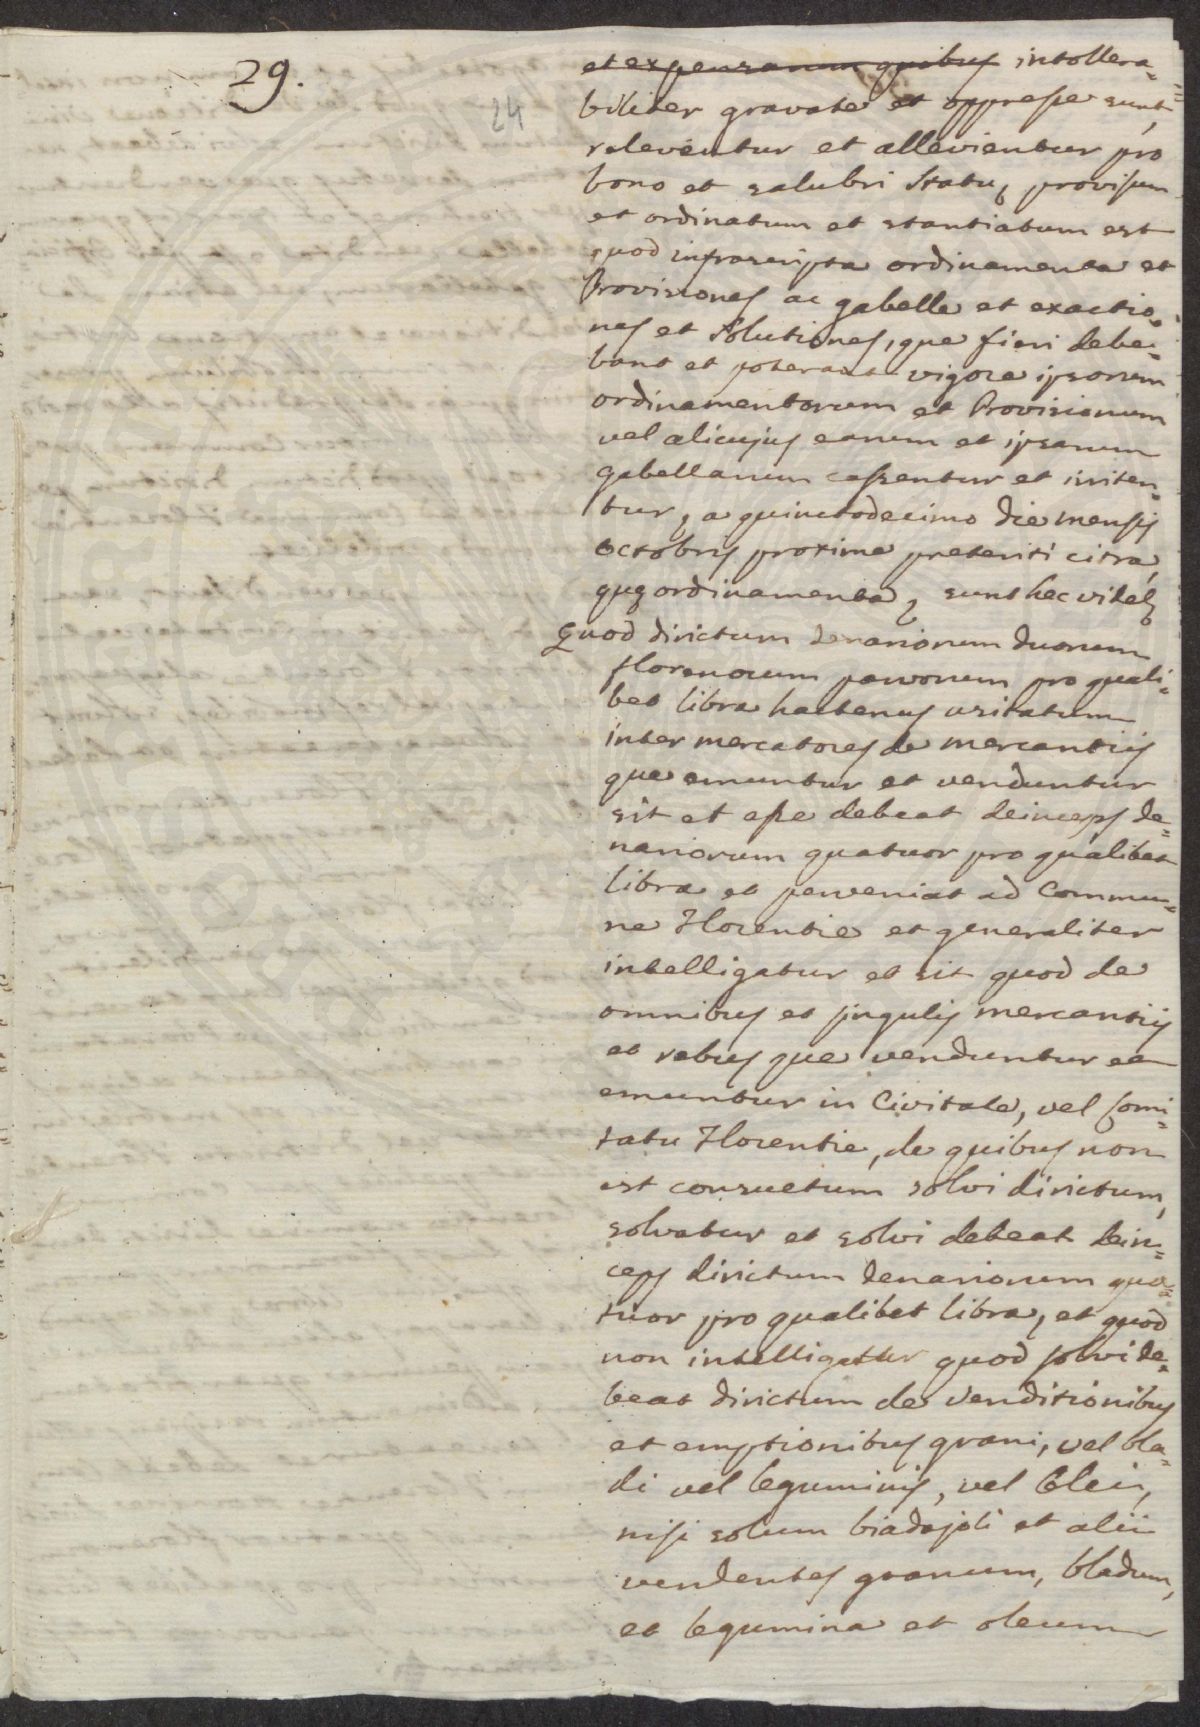 29.
24
et expensarum quibus intollera=
biliter gravate et oppresse sunt,
releventur et allevientur pro
bono et salubri statu, provisum
et ordinatum et stantiatum est
quod infrascripta ordinamenta et
Provisiones ac gabelle et exactio=
nes et solutiones, que fieri debe=
bant et poterant vigore ipsorum
ordinamentorum et Provisionum
vel alicujus earum et ipsarum
gabellarum cassentur et iriten=
tur, a quinctodecimo die mensis
octobris proxime preteriti citra,
que ordinamenta, sunt hec videlz
Quod dirictum denariorum duorum
florenorum parvorum pro quali=
bet libra hactenus usitatum
inter mercatores de mercantiis
que emuntur et venduntur
sit et esse debeat deinceps de=
nariorum quatuor pro qualibet
libra et perveniat ad Commu=
ne Florentie et generaliter
intelligatur et sit quod de
omnibus et singulis mercantiis
et rebus que venduntur et
emuntur in Civitate, vel Comi=
tatu Florentie, de quibus non
est consuetum solvi dirictum,
solvatur et solvi debeat dein=
ceps dirictum denariorum qua=
tuor pro qualibet libra, et quod
non intelligatur quod solvi de=
beat dirictum de venditionibus
et emptionibus grani, vel bla=
di vel leguminis, vel olei,
nisi solum biadajoli et alii
vendentes granum, bladum,
et legumina et oleum